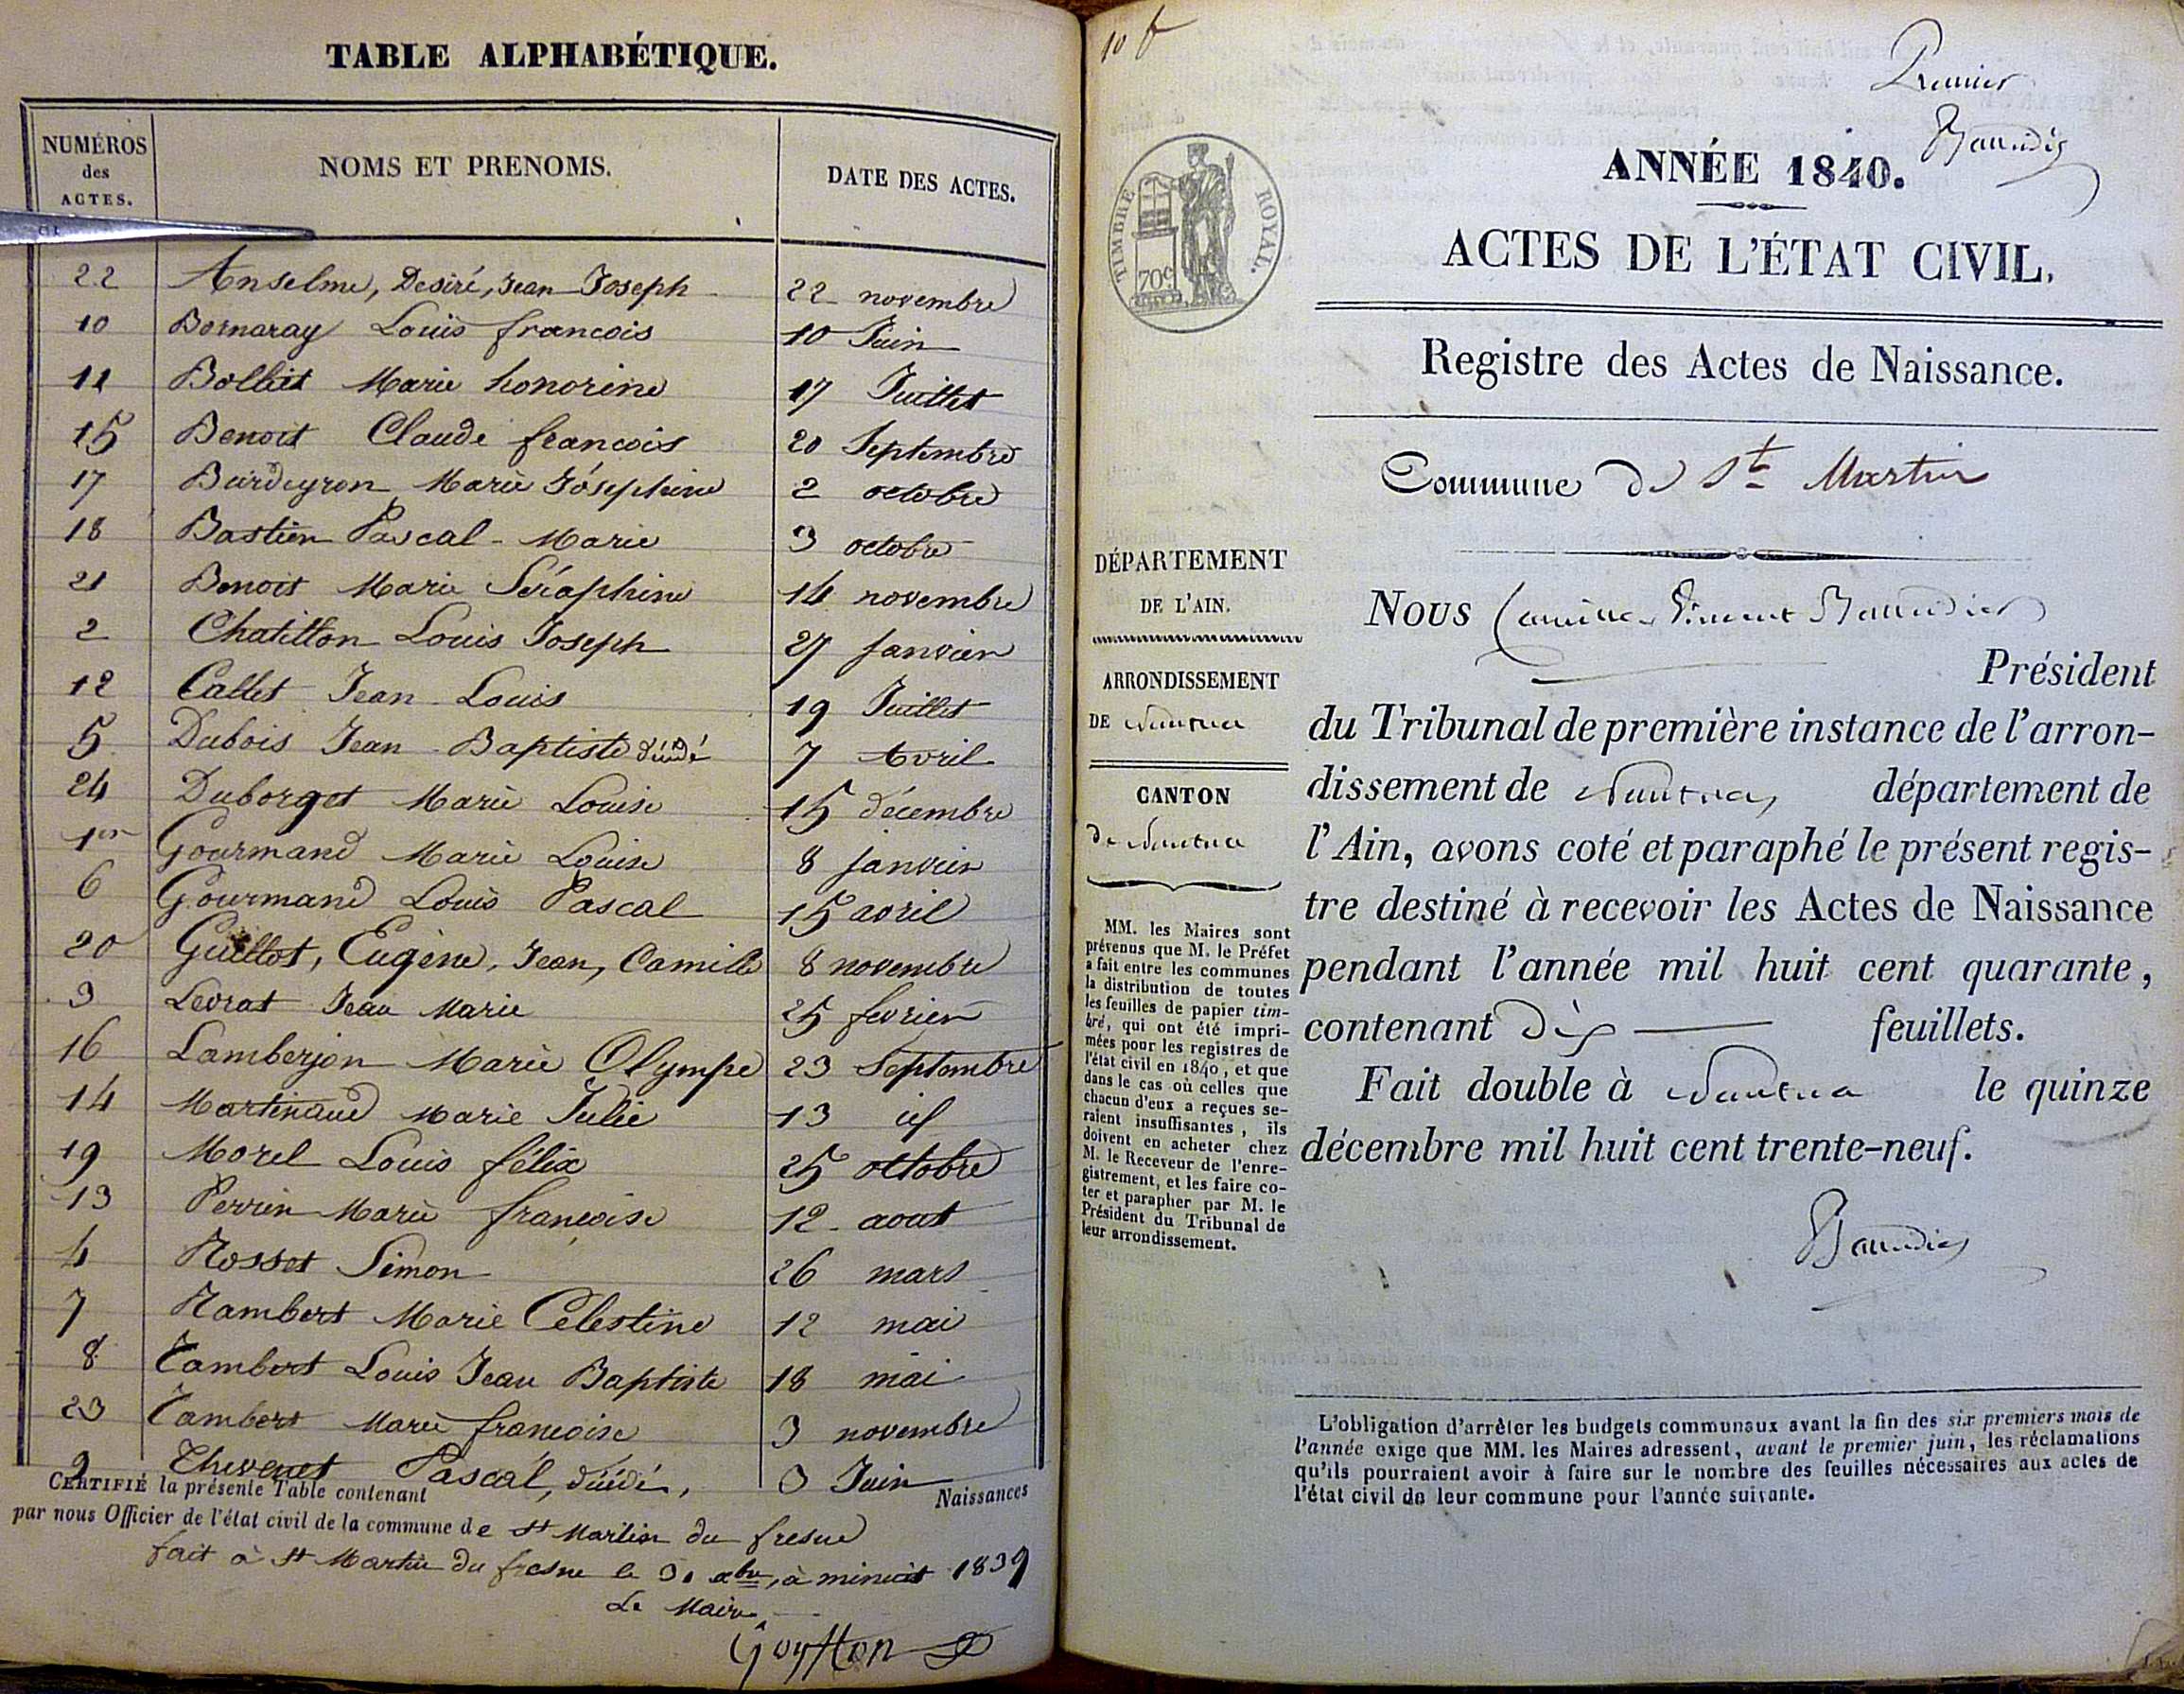 TABLE ALPHABÉTIQUE.
NUMÉROS des ACTES. NOMS ET PRENOMS. DATE DES ACTES.
22 Anselme, Desiré, Jean Joseph 22 novembre
10 Bornaray Louis francois 10 Juin
11 Bolliet Marie honorine 17 Juillet
15 Benoit Claude francois 20 Septembre
17 Burdeyron Marie Joséphine 2 octobre
18 Bastien Pascal - Marie 3 octobre
21 Benoit Marie Séraphine 14 novembre
2 Chatillon Louis Joseph 27 janvier
12 Callet Jean - Louis 19 Juillet
5 Dubois Jean - Baptiste 7 Avril
24 Duborget Marie Louise 15 décembre
1er Gourmand Marie Louise 8 janvier
6 Gourmand Louis Pascal 15 avril
20 Guillot, Eugène, Jean, Camille 8 novembre
3 Levrat Jean Marie 25 fevrier
16 Lamberjon Marie Olympe 23 Septembre
14 Martinaud Marie Julie 13
19 Morel Louis félix 25 octobre
13 Perrin Marie françoise 12 aout
4 Rosset Simon 26 mars
7 Rambert Marie Célestine 12 mai
8 Tambert Louis Jean Baptiste 18 mai
23 Tambert Marie francoise 3 novembre
9 Thevenet Pascal, Juin
CERTIFIÉ la présente Table contenant Naissances
par nous Officier de l'état civil de la commune de St Martin du fresne
fait à St Martin du fresne le à minuit 1839
Le Maire,
10 f
Premier
Baundier
TIMBRE ROYAL.
70c
ANNÉE 1840.
ACTES DE L'ÉTAT CIVIL.
Registre des Actes de Naissance.
Commune de St Martin
DÉPARTEMENT
DE L'AIN.
ARRONDISSEMENT
DE Nantua
CANTON
de Nantua
MM. les Maires sont
prévenus que M. le Préfet
a fait entre les communes
la distribution de toutes
les feuilles de papier tim-
bré, qui ont été impri-
mées pour les registres de
l'état civil en 1840, et que
dans le cas où celles que
chacun d'eux a reçues se-
raient insuffisantes, ils
doivent en acheter chez
M. le Receveur de l'enre-
gistrement, et les faire co-
ter et parapher par M. le
Président du Tribunal de
leur arrondissement.
Nous Camille Vincent
Président
du Tribunal de première instance de l'arron-
dissement de Nantua, département de
l'Ain, avons coté et paraphé le présent regis-
tre destiné à recevoir les Actes de Naissance
pendant l'année mil huit cent quarante,
contenant Dix feuillets.
Fait double à Nantua le quinze
décembre mil huit cent trente-neuf.
L'obligation d'arrêter les budgets communaux avant la fin des six premiers mois de
l'année exige que MM. les Maires adressent, avant le premier juin, les réclamations
qu'ils pourraient avoir à faire sur le nombre des feuilles nécessaires aux actes de
l'état civil de leur commune pour l'année suivante.